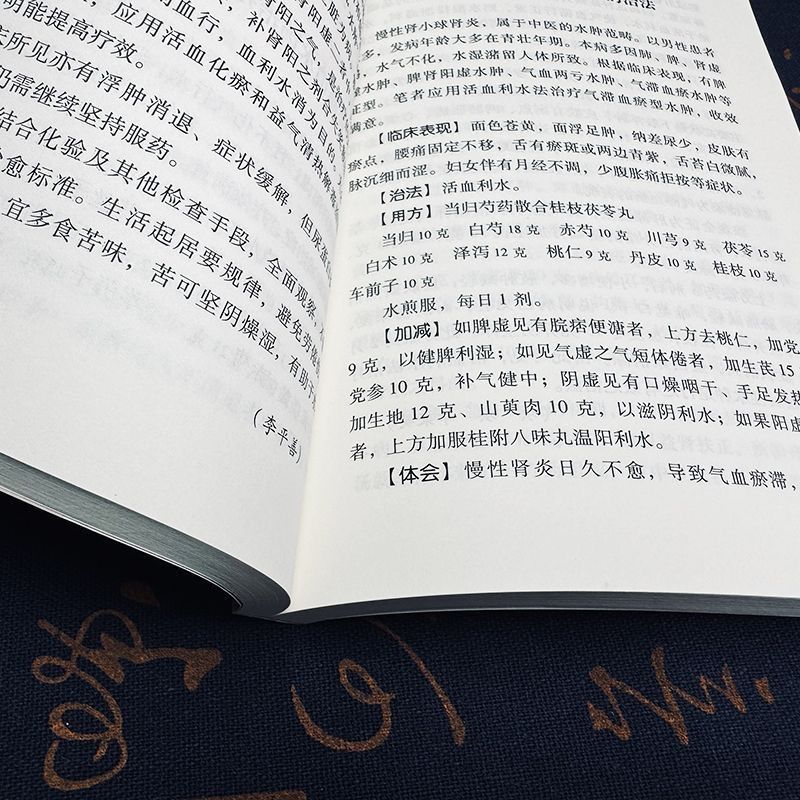 脏失势
肾阳虚二者
补肾阳之气，是治疗
血行，血利水消为目的。
应用活血化瘀和益气清热解
明能提高疗效。
所见亦有浮肿消退、症状缓解，但尿蛋
仍需继续坚持服药。
结合化验及其他检查手段，全面观察，
愈标准。生活起居要规律，避免劳
宜多食苦味，苦可坚阴燥湿，有助于
（李平善）
治法
慢性肾小球肾炎，属于中医的水肿范畴。以男性患者
多，发病年龄大多在青壮年期。本病多因肺、脾、肾虚
，水气不化，水湿潴留人体所致。根据临床表现，有脾
虚水肿、脾肾阳虚水肿、气血两亏水肿、气滞血瘀水肿等
证型。笔者应用活血利水法治疗气滞血瘀型水肿，收效
满意。
【临床表现】面色苍黄，面浮足肿，纳差尿少，皮肤有
瘀点，腰痛固定不移，舌有瘀斑或两边青紫，舌苔白微腻，
脉沉细而涩。妇女伴有月经不调，少腹胀痛拒按等症状。
【治法】活血利水。
【用方】当归芍药散合桂枝茯苓丸
当归 10 克 白芍 18 克 赤芍 10 克 川芎 9 克 茯苓 15 克
白术 10 克 泽泻 12 克 桃仁 9 克 丹皮 10 克 桂枝 10 克
车前子 10 克
水煎服，每日 1 剂。
【加减】如脾虚见有脘痞便溏者，上方去桃仁，加党
9 克，以健脾利湿；如见气虚之气短体倦者，加生芪 15
党参 10 克，补气健中；阴虚见有口燥咽干、手足发热
加生地 12 克、山萸肉 10 克，以滋阴利水；如果阳虚
者，上方加服桂附八味丸温阳利水。
【体会】慢性肾炎日久不愈，导致气血瘀滞，